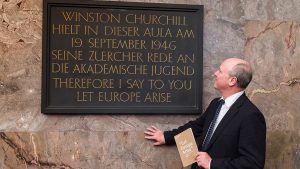 WINSTON CHURCHILL
HIELT IN DIESER AULA AM
19 SEPTEMBER 1946
SEINE ZUERCHER REDE AN
DIE AKADEMISCHE JUGEND
THEREFORE I SAY TO YOU
LET EUROPE ARISE